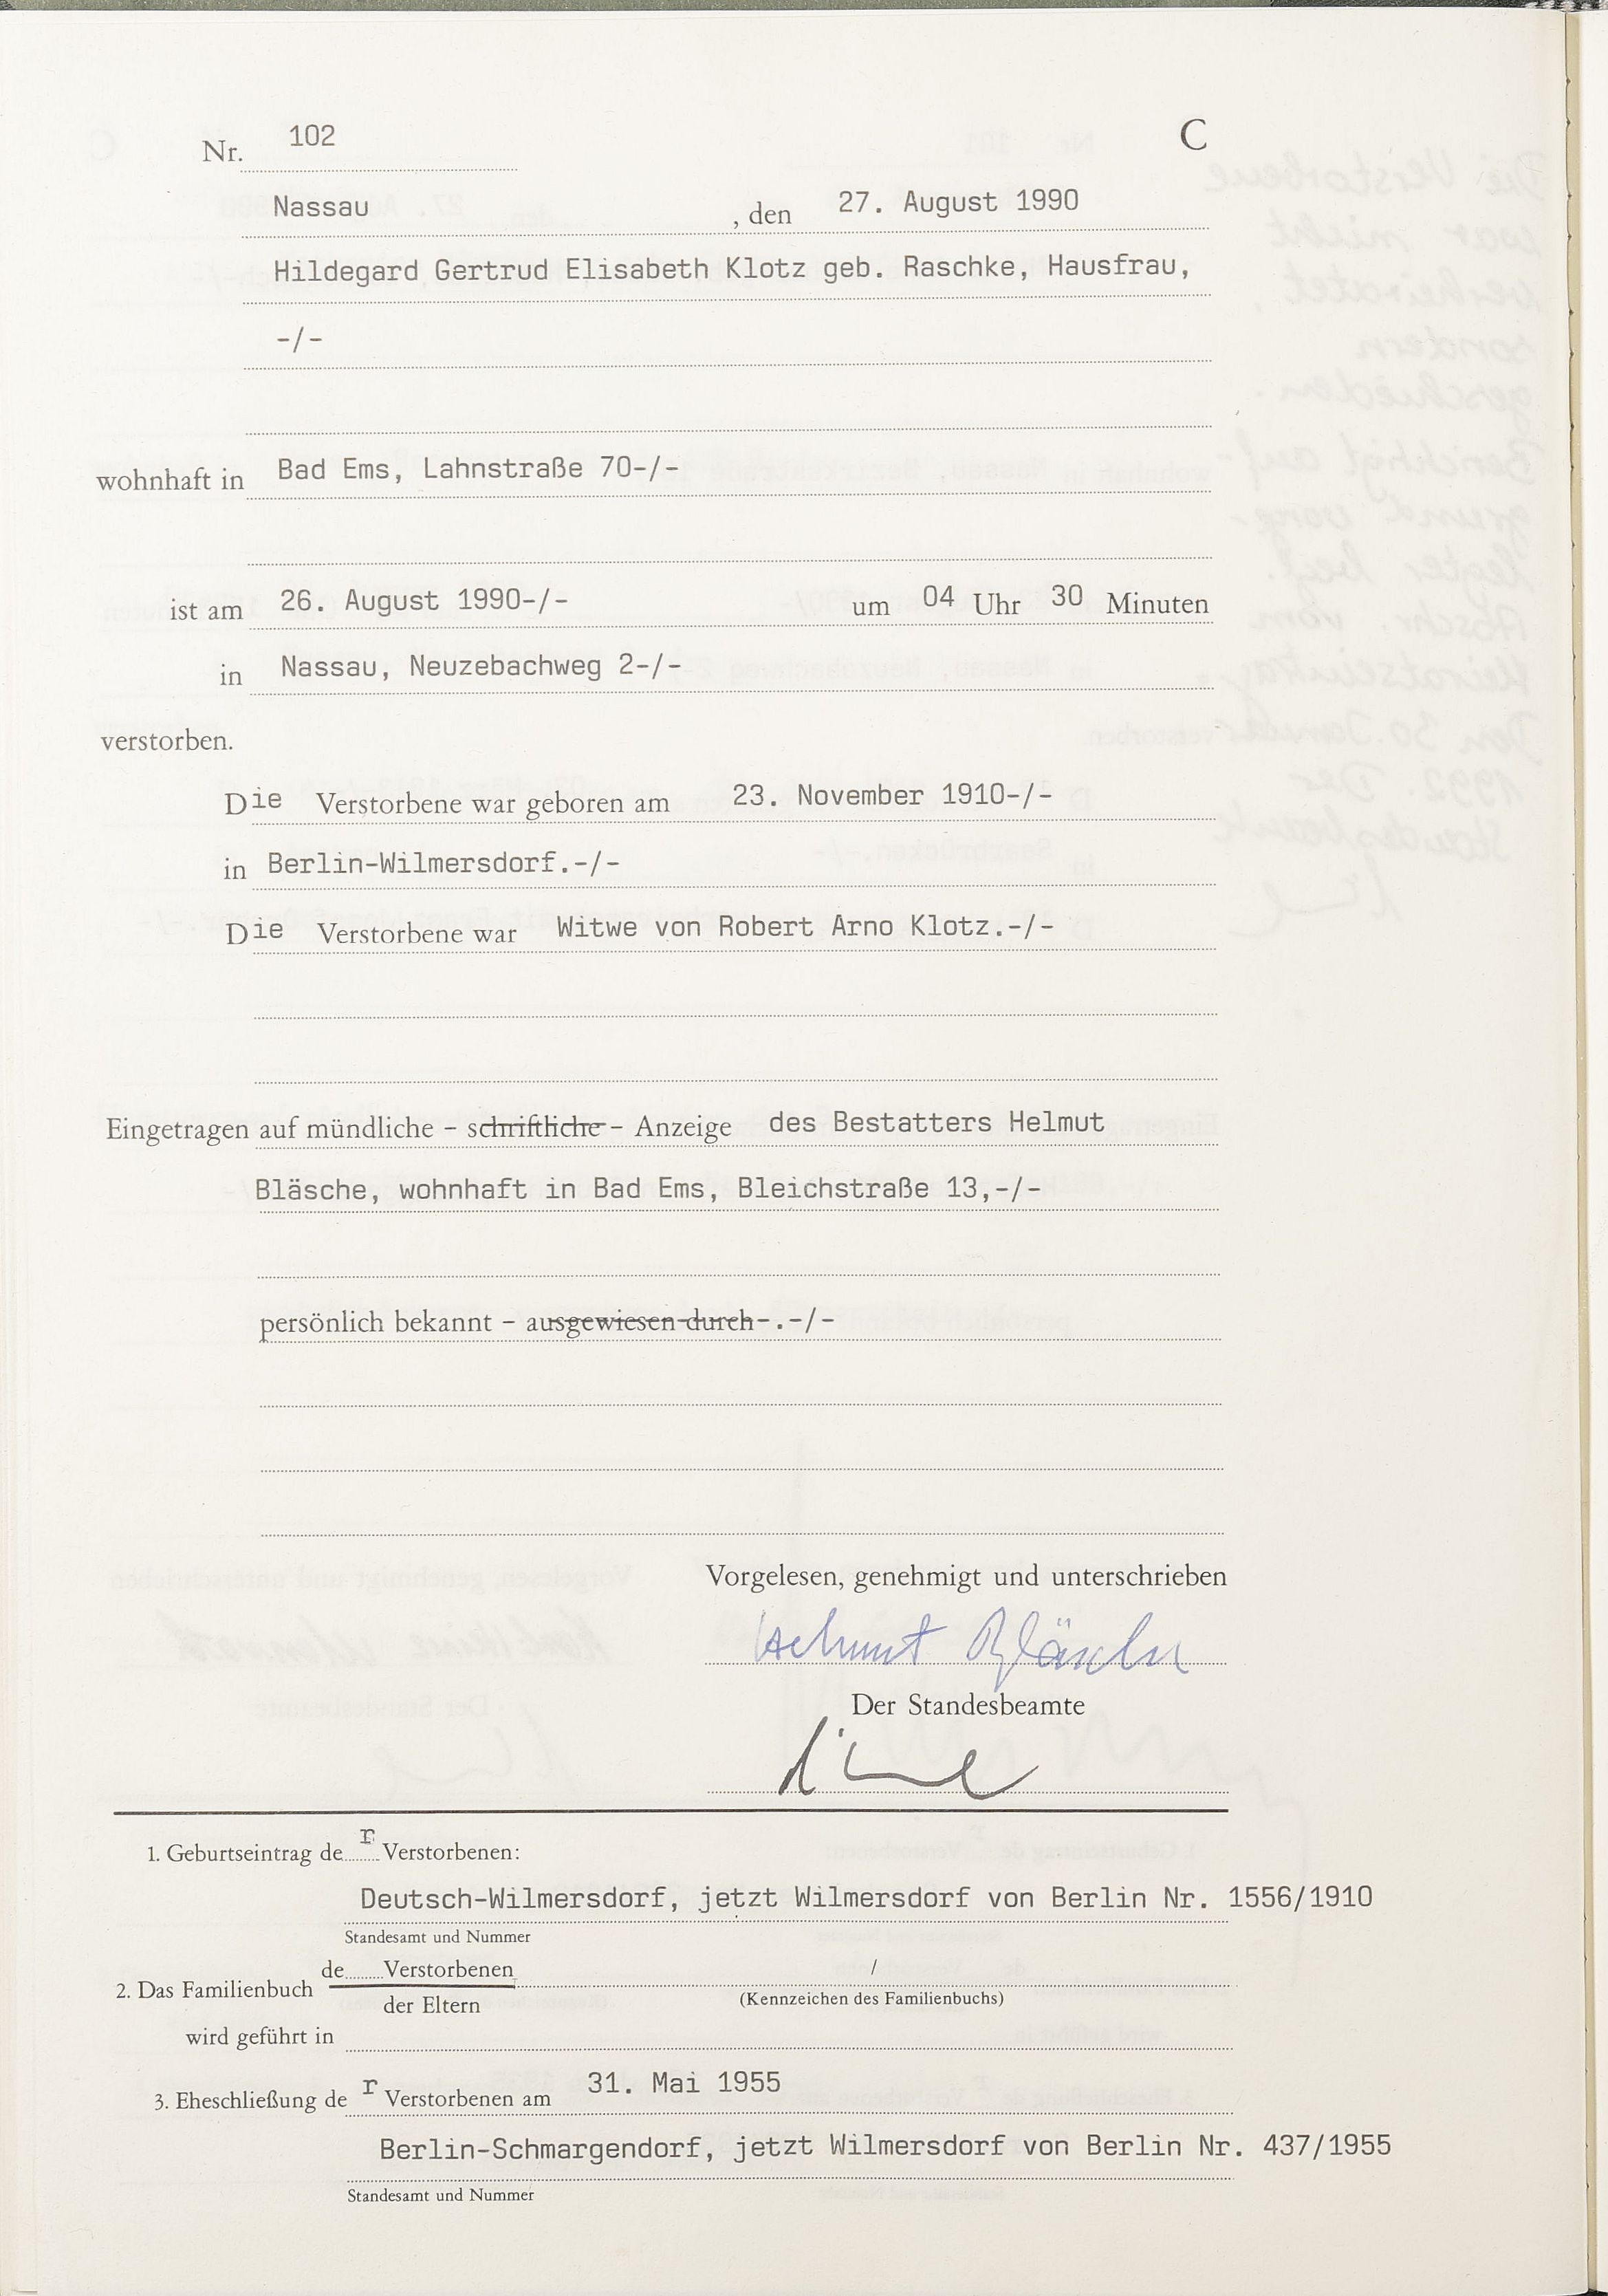 Nr. 102 C
Nassau , den 27. August 1990
Hildegard Gertrud Elisabeth Klotz geb. Raschke, Hausfrau,
-/-
wohnhaft in Bad Ems, Lahnstraße 70-/-
ist am 26. August 1990-/- um 04 Uhr 30 Minuten
in Nassau, Neuzebachweg 2-/-
verstorben.
Die Verstorbene war geboren am 23. November 1910-/-
in Berlin-Wilmersdorf.-/-
Die Verstorbene war Witwe von Robert Arno Klotz.-/-
Eingetragen auf mündliche – schriftliche – Anzeige des Bestatters Helmut
Bläsche, wohnhaft in Bad Ems, Bleichstraße 13,-/-
persönlich bekannt – ausgewiesen durch-.-/-
Vorgelesen, genehmigt und unterschrieben
Helmut Bläsche
Der Standesbeamte
1. Geburtseintrag der Verstorbenen:
Deutsch-Wilmersdorf, jetzt Wilmersdorf von Berlin Nr. 1556/1910
Standesamt und Nummer
de........Verstorbenen /
2. Das Familienbuch
der Eltern (Kennzeichen des Familienbuchs)
wird geführt in
3. Eheschließung der Verstorbenen am 31. Mai 1955
Berlin-Schmargendorf, jetzt Wilmersdorf von Berlin Nr. 437/1955
Standesamt und Nummer